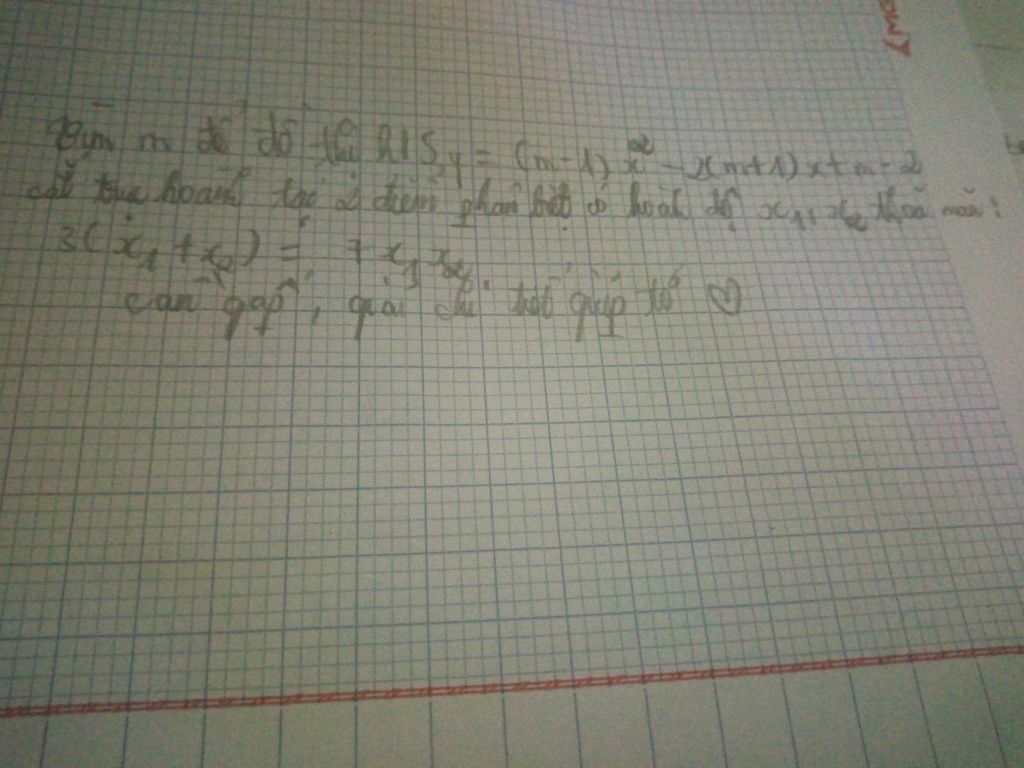 Tìm m để đồ thị h/s y = (m-1)x² - 2(m+1)x + m - 2
cắt trục hoành tại 2 điểm phân biệt có hoành độ x₁, x₂ thoả mãn:
3(x₁ + x₂) = 7 x₁ x₂.
cần gấp, giải chi tiết giúp tớ ♡